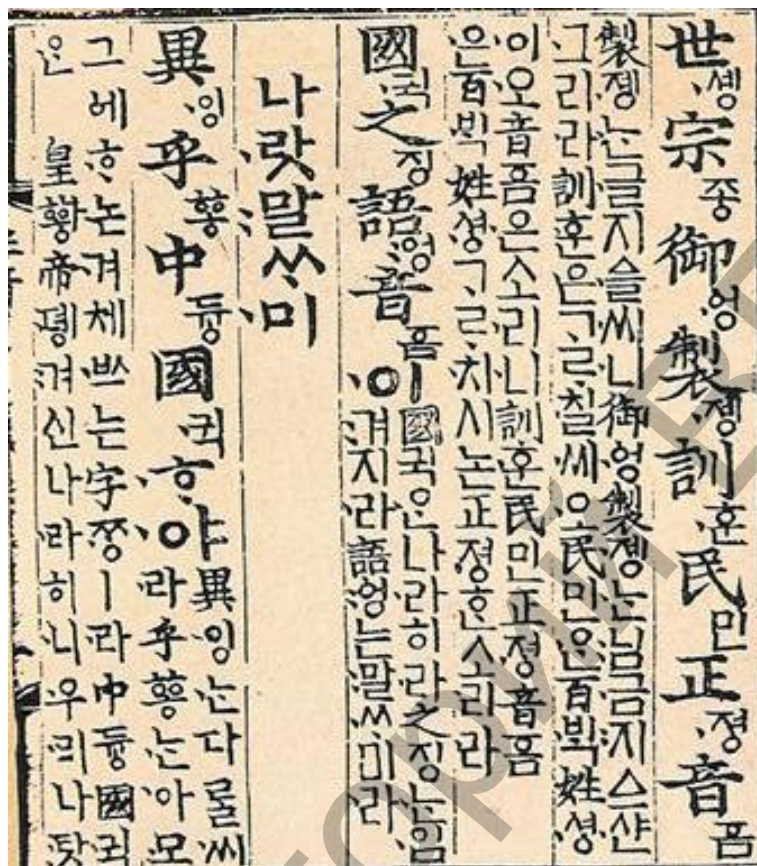 世솅宗종御ᅌᅥᆼ製졩訓훈民민正졍音ᅙᅳᆷ
製졩ᄂᆞᆫ글지ᅀᅳᆯ씨니御ᅌᅥᆼ製졩ᄂᆞᆫ님금지ᅀᅳ샨
그리라訓훈은ᄀᆞᄅᆞ칠씨오民민ᄋᆞᆫ百ᄇᆡᆨ姓셩
이오音ᅙᅳᆷ은소리니訓훈民민正졍音ᅙᅳᆷ
은百ᄇᆡᆨ姓셩ᄀᆞᄅᆞ치시논正졍ᄒᆞᆫ소리라
國귁之징語ᅌᅥᆼ音ᅙᅳᆷ이國귁ᄋᆞᆫ나라히라之징ᄂᆞᆫ입
겨지라語ᅌᅥᆼ는말ᄊᆞ미라
나랏말ᄊᆞ미
異잉乎ᅘᅩᆼ中듀ᇰ國귁ᄒᆞ야異잉ᄂᆞᆫ다ᄅᆞᆯ씨
라乎ᅘᅩᆼᄂᆞᆫ아모
그ᅌᅦᄒᆞ논겨체ᄡᅳ는字ᄍᆞᆼㅣ라中듀ᇰ國귁
ᄋᆞᆫ皇ᅘᅪᇰ帝뎽겨신나라히니우리나랏